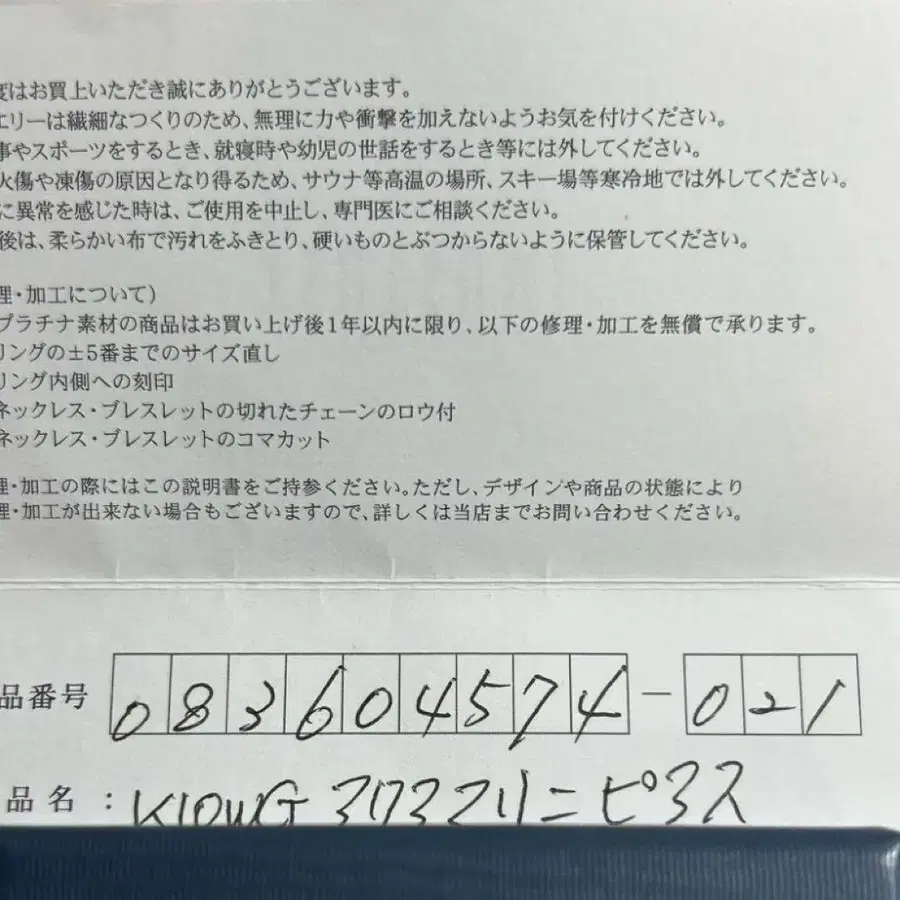 度はお買上いただき誠にありがとうございます。
エリーは繊細なつくりのため、無理に力や衝撃を加えないようお気を付けください。
事やスポーツをするとき、就寝時や幼児の世話をするとき等には外してください。
火傷や凍傷の原因となり得るため、サウナ等高温の場所、スキー場等寒冷地では外してください。
に異常を感じた時は、ご使用を中止し、専門医にご相談ください。
後は、柔らかい布で汚れをふきとり、硬いものとぶつからないように保管してください。
理・加工について）
プラチナ素材の商品はお買い上げ後1年以内に限り、以下の修理・加工を無償で承ります。
リングの±5番までのサイズ直し
リング内側への刻印
ネックレス・ブレスレットの切れたチェーンのロウ付
ネックレス・ブレスレットのコマカット
理・加工の際にはこの説明書をご持参ください。ただし、デザインや商品の状態により
理・加工が出来ない場合もございますので、詳しくは当店までお問い合わせください。
品番号 083604574-021
品名：K10WG ピアス